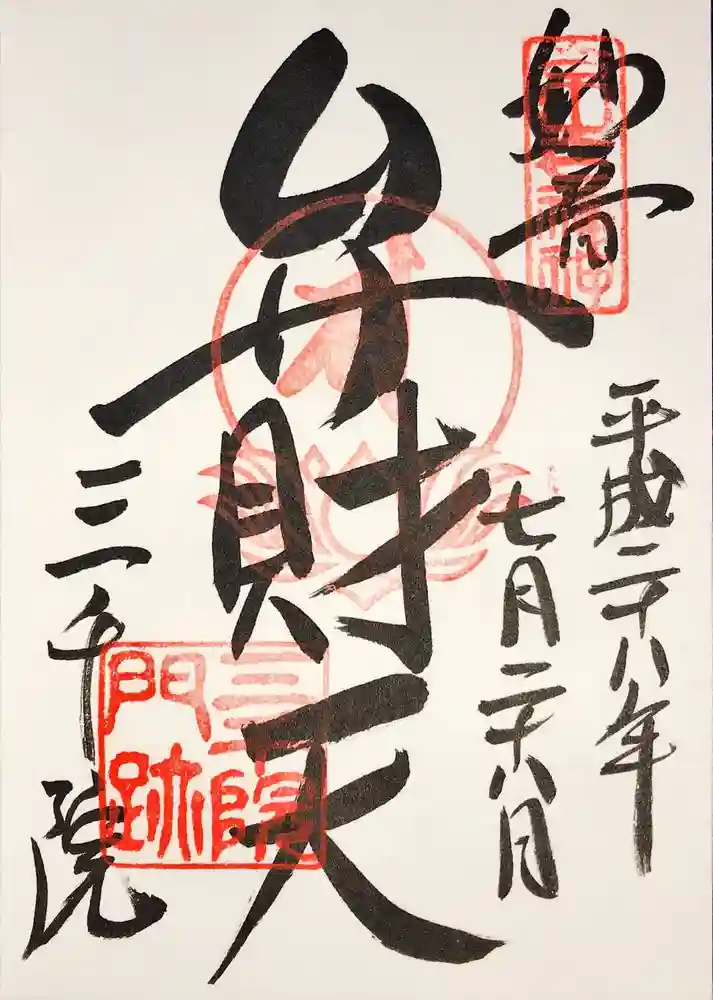 妙音
弁財天
平成二十八年
七月二十八日
三千院
三千院
門跡